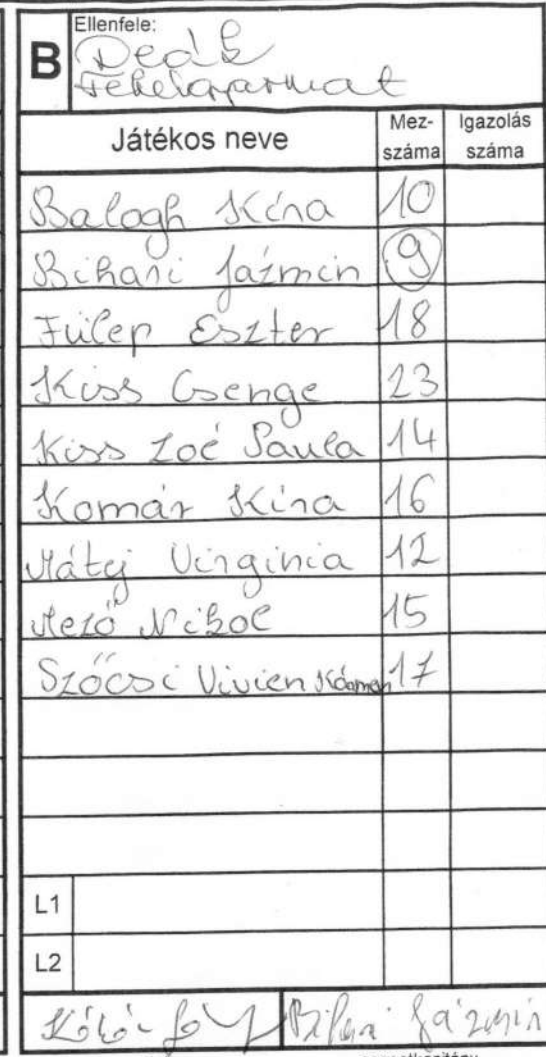 B
Ellenfele:
Deák
Fehérgyarmat
Játékos neve Mez-száma Igazolás száma
Balogh Kíra 10
Bihari Jázmin 9
Fülep Eszter 18
Kiss Csenge 23
Kiss Zoé Paula 14
Komár Kíra 16
Mátéj Virginia 12
Mező Nikol 15
Szőcsi Vivien 17
L1
L2
Bihari Jázmin